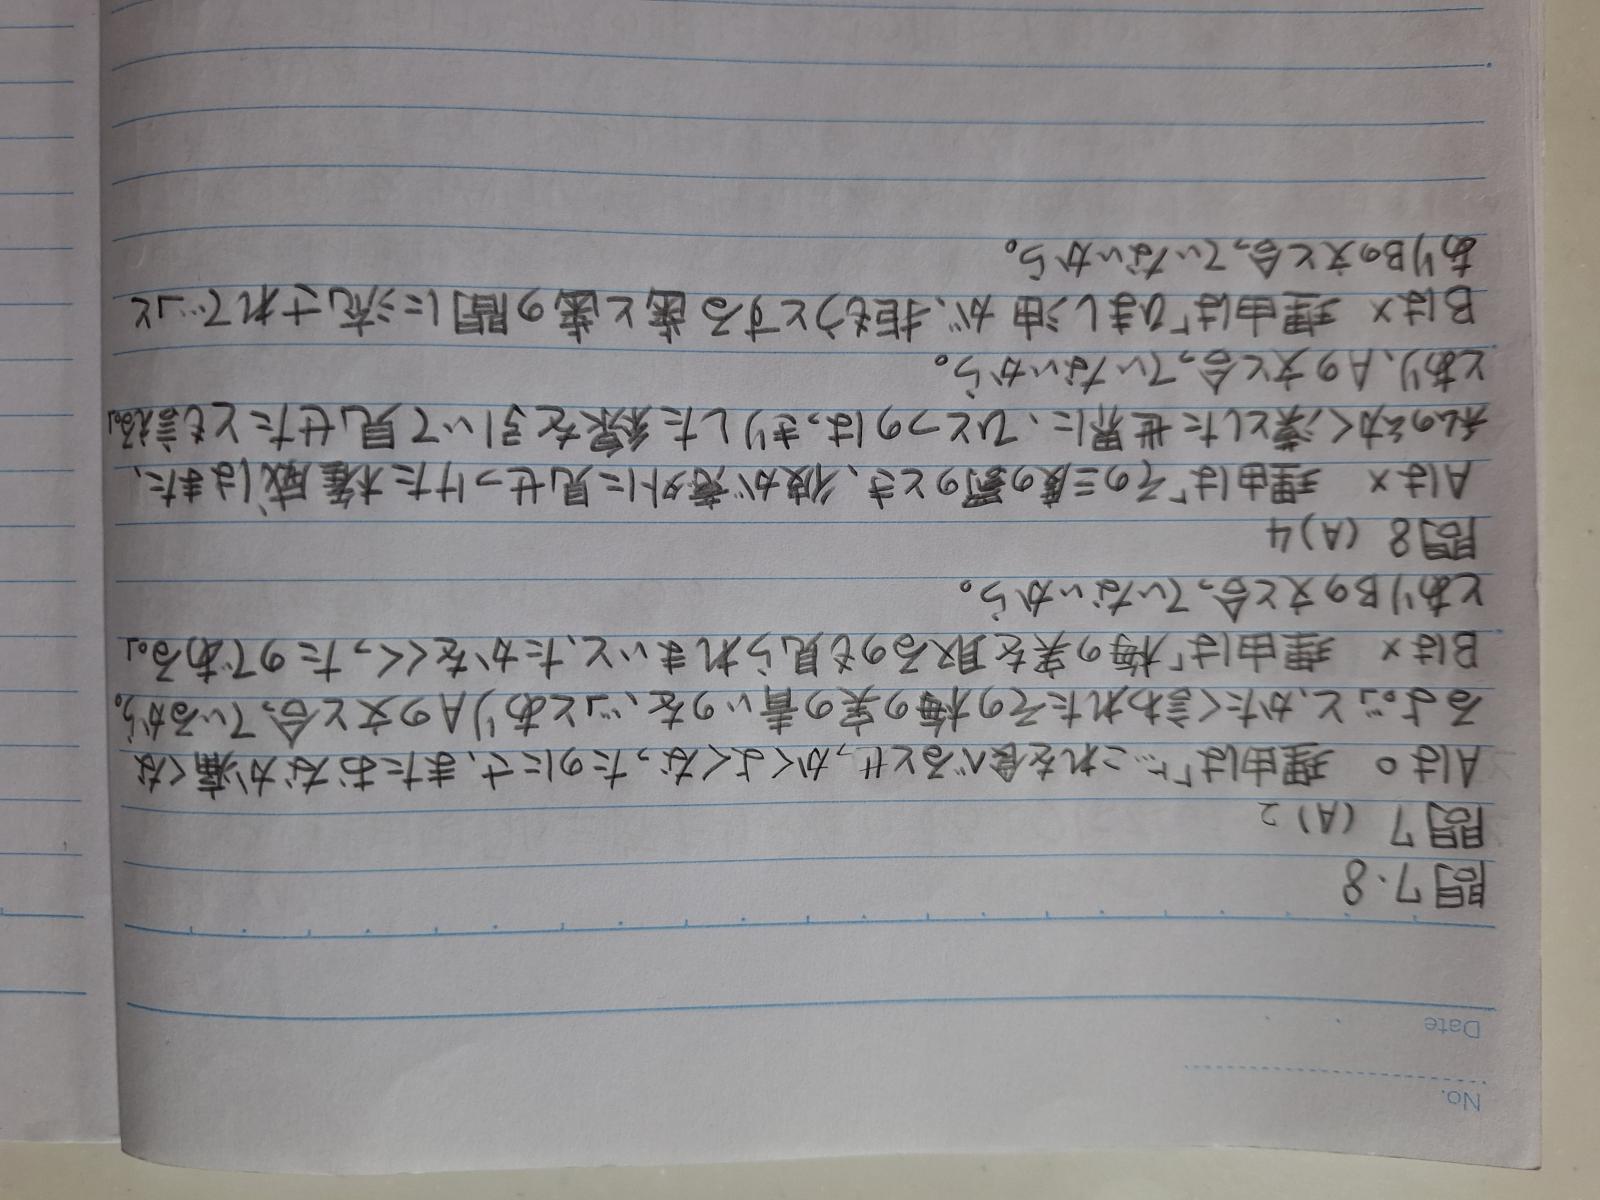 No.
Date
問7・8
問7 (A)2
Aは○ 理由は「『…これを食べるとせっかくよくなったのにさ、またおなか痛くな
るよ。』と、かたく言われたその梅の実の青いのを、」とありAの文と合っているから。
Bは× 理由は「梅の実を取るのも見られまいと、たかをくくったのである。」
とありBの文と合っていないから。
問8 (A)4
Aは× 理由は「その三度の罰のとき、彼が意外に見せつけた権威はまた、
私の幼く漠とした世界に、ひとつのはっきりした線を引いて見せたとも言える。」
とあり、Aの文と合っていないから。
Bは× 理由は「ひまし油が、拒もうとする歯と歯の間に流されて」と
ありBの文と合っていないから。